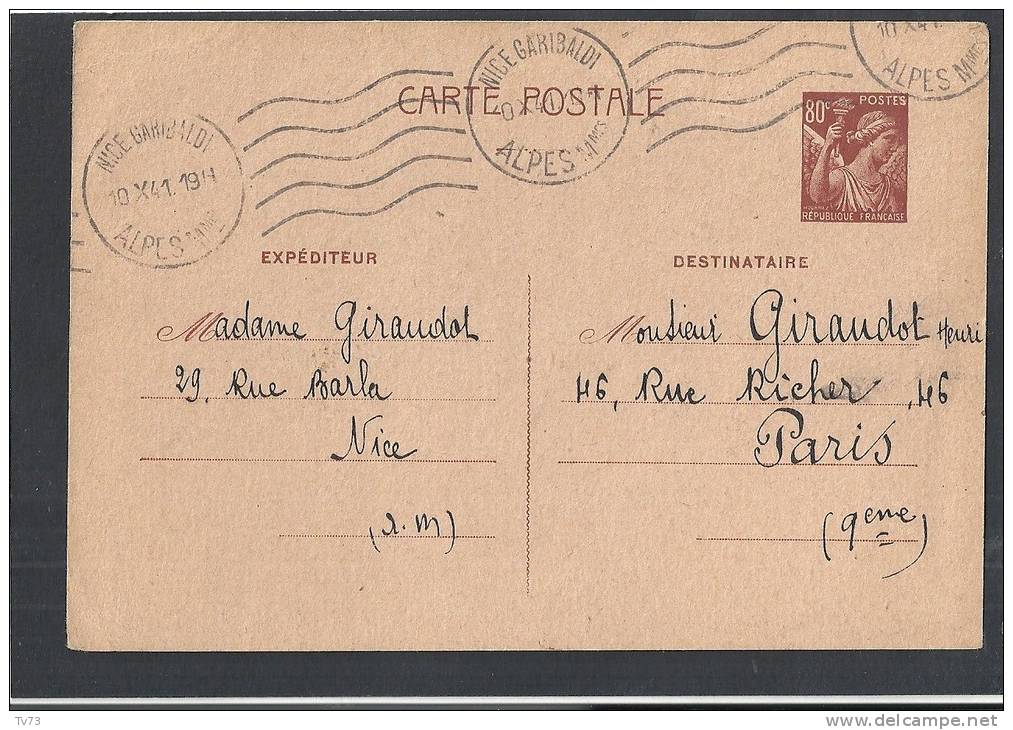 NICE GARIBALDI
10 X 41. 19 H
ALPES MMES
NICE GARIBALDI
ALPES MMES
10 X 41.
ALPES MMES
CARTE POSTALE
80c POSTES
RÉPUBLIQUE FRANÇAISE
EXPÉDITEUR
Madame Giraudot
29, Rue Barla
Nice
(A.M)
DESTINATAIRE
Monsieur Giraudot Henri
46, Rue Richer, 46
Paris
(9eme)
Tv73
www.delcampe.net